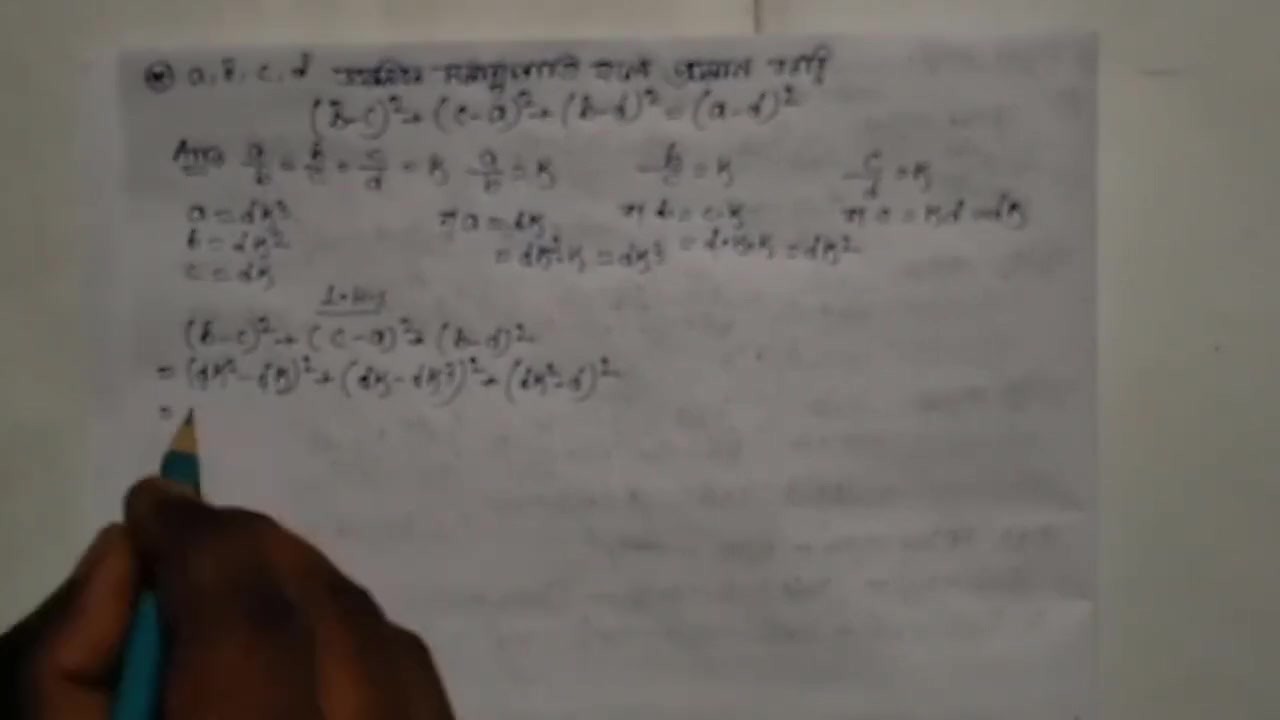 a, b, c, d ক্রমিক সমানুপাতি হলে প্রমাণ করো
(b-c)² + (c-a)² + (b-d)² = (a-d)²
Ans a/b = b/c = c/d = k a/b = k b/c = k c/d = k
a = dk³ π a = bk π b = c·k π c = kd = dk
b = dk² = dk²·k = dk³ = d·k·k = dk²
c = dk
(b-c)² + (c-a)² + (b-d)²
= (dk² - dk)² + (dk - dk³)² + (dk² - d)²
=